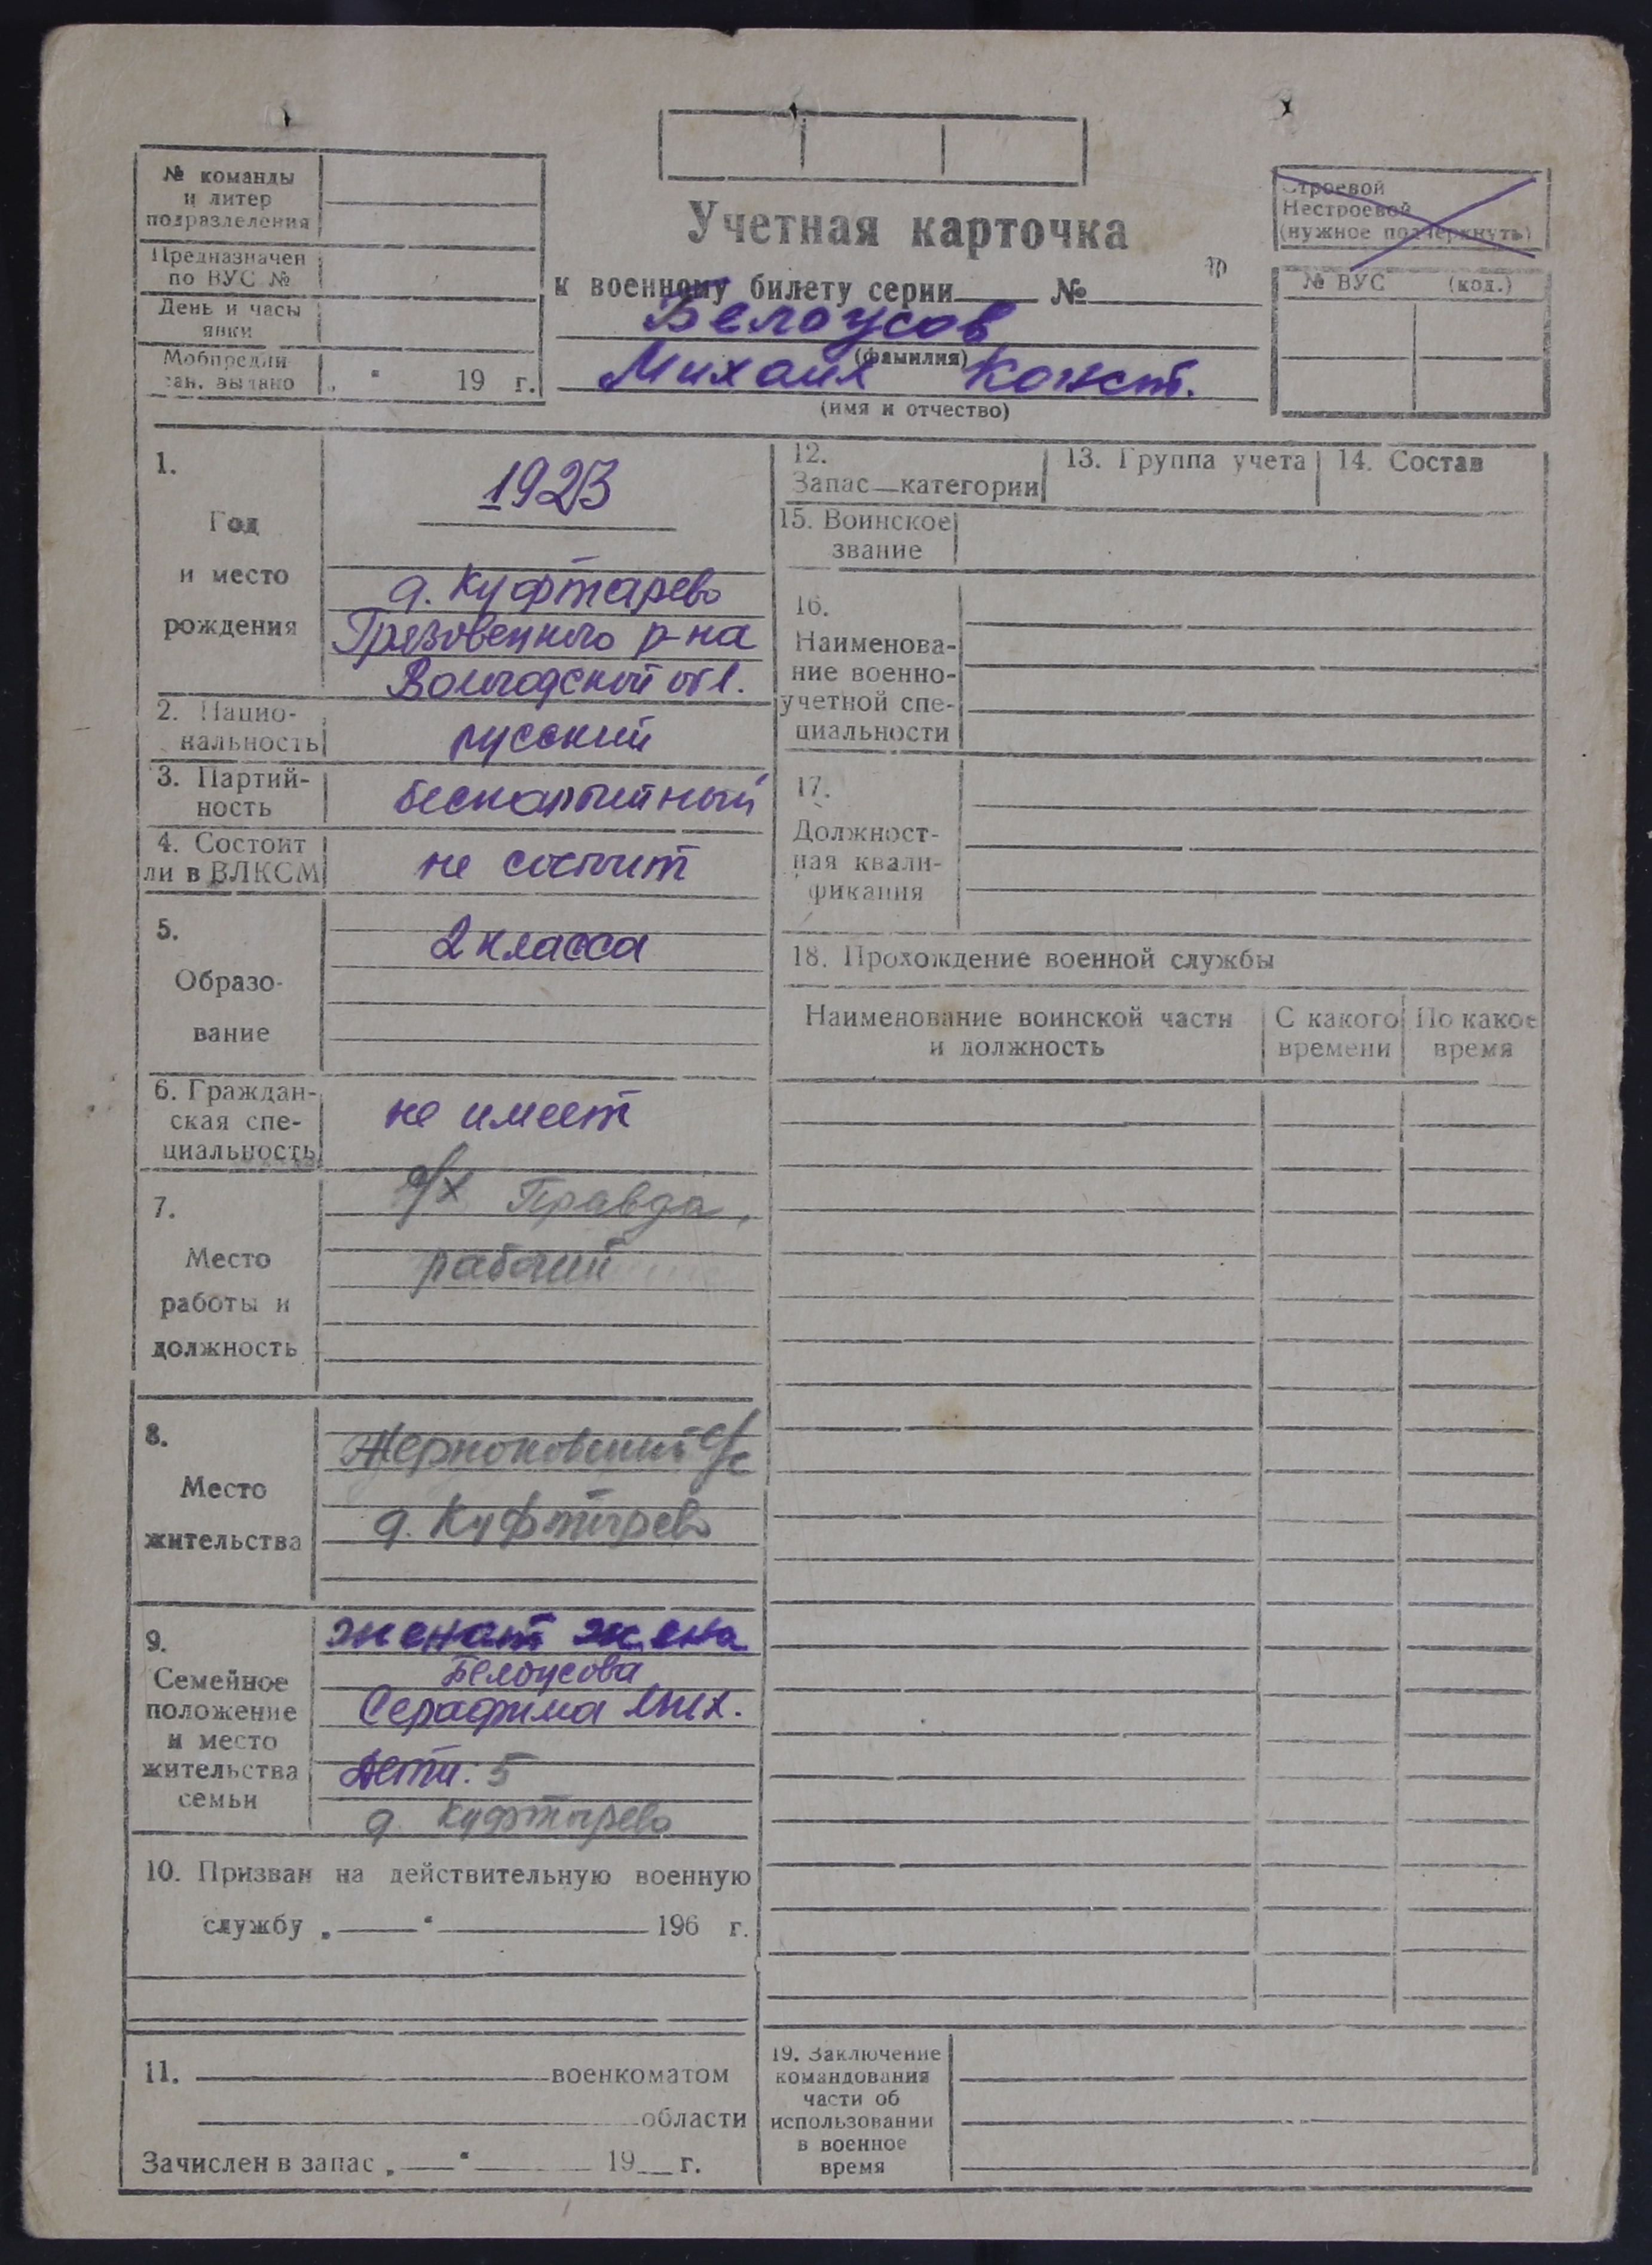 № команды
и литер
подразделения
Предназначен
по ВУС №
День и часы
явки
Мобпредпи
сан. выдано „ “ 19 г.
Учетная карточка
к военному билету серии №
Белоусов
(фамилия)
Михаил Конст.
(имя и отчество)
Строевой
Нестроевой
(нужное подчеркнуть)
№ ВУС (код.)
1.
Год
и место
рождения
1923
д. Куфтарево
Грязовецкого р-на
Вологодской обл.
2. Нацио-
нальность
русский
3. Партий-
ность
беспартийный
4. Состоит
ли в ВЛКСМ
не состоит
5.
Образо-
вание
2 класса
6. Граждан-
ская спе-
циальность
не имеет
7.
Место
работы и
должность
с/х Правда,
рабочий
8.
Место
жительства
Жерноковский с/с
д. Куфтырево
9.
Семейное
положение
и место
жительства
семьи
женат жена
Белоусова
Серафима Мих.
Дети: 5
д. Куфтырево
10. Призван на действительную военную
службу „ “ 196 г.
11. военкоматом
области
Зачислен в запас „ “ 19 г.
12.
Запас—категории
13. Группа учета
14. Состав
15. Воинское
звание
16.
Наименова-
ние военно-
учетной спе-
циальности
17.
Должност-
ная квали-
фикация
18. Прохождение военной службы
Наименование воинской части
и должность
С какого
времени
По какое
время
19. Заключение
командования
части об
использовании
в военное
время